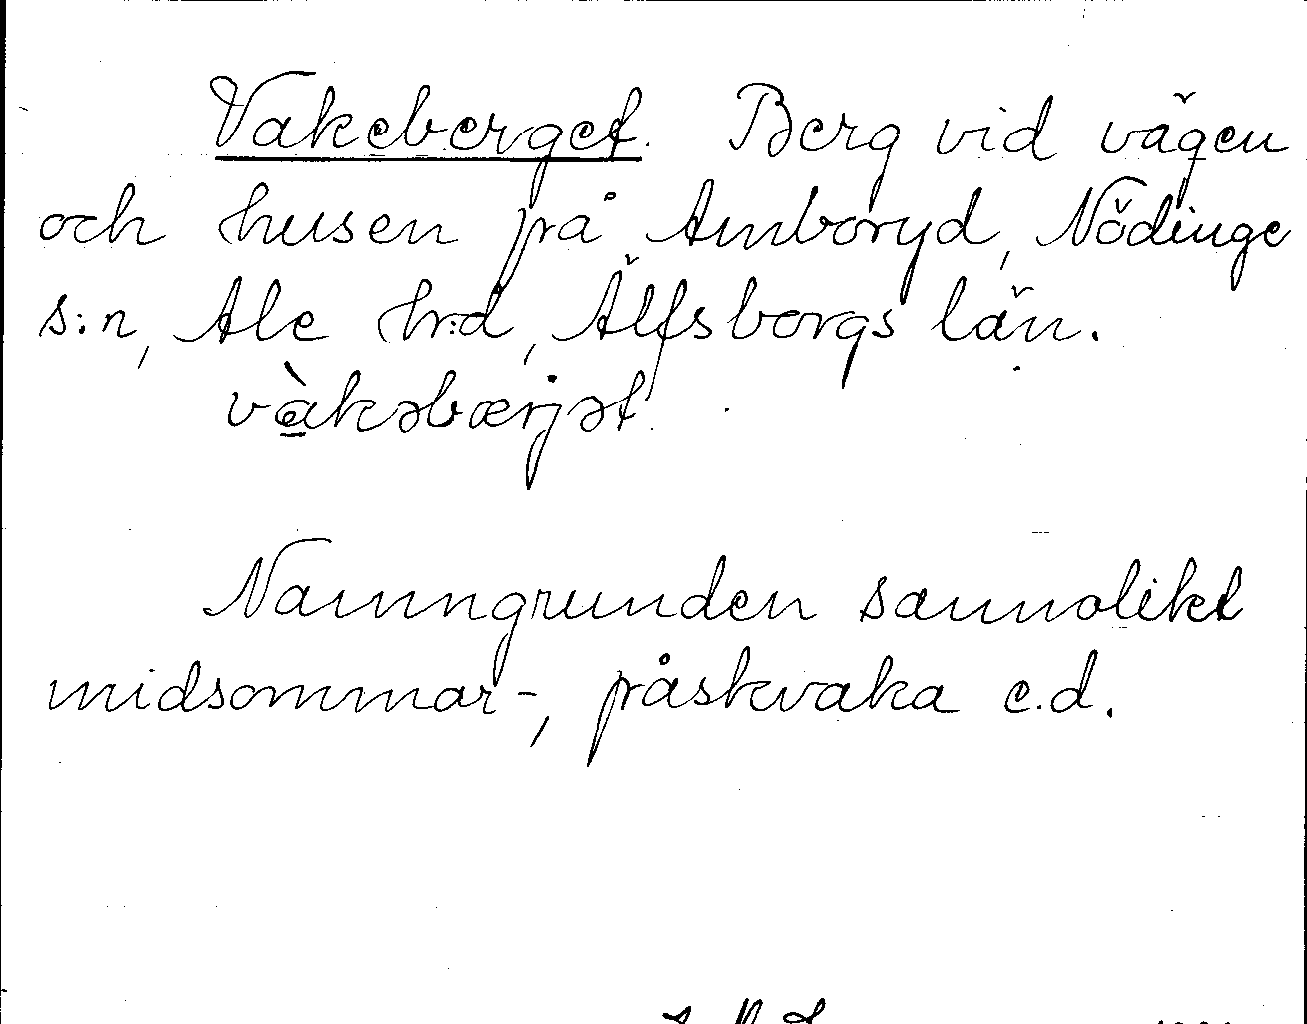 Vakeberget. Berg vid vägen
och husen på Amboryd, Nödinge
s:n, Ale h:d, Älfsborgs län.
vàkəbærjət.
Namngrunden sannolikt
midsommar-, påskvaka e.d.